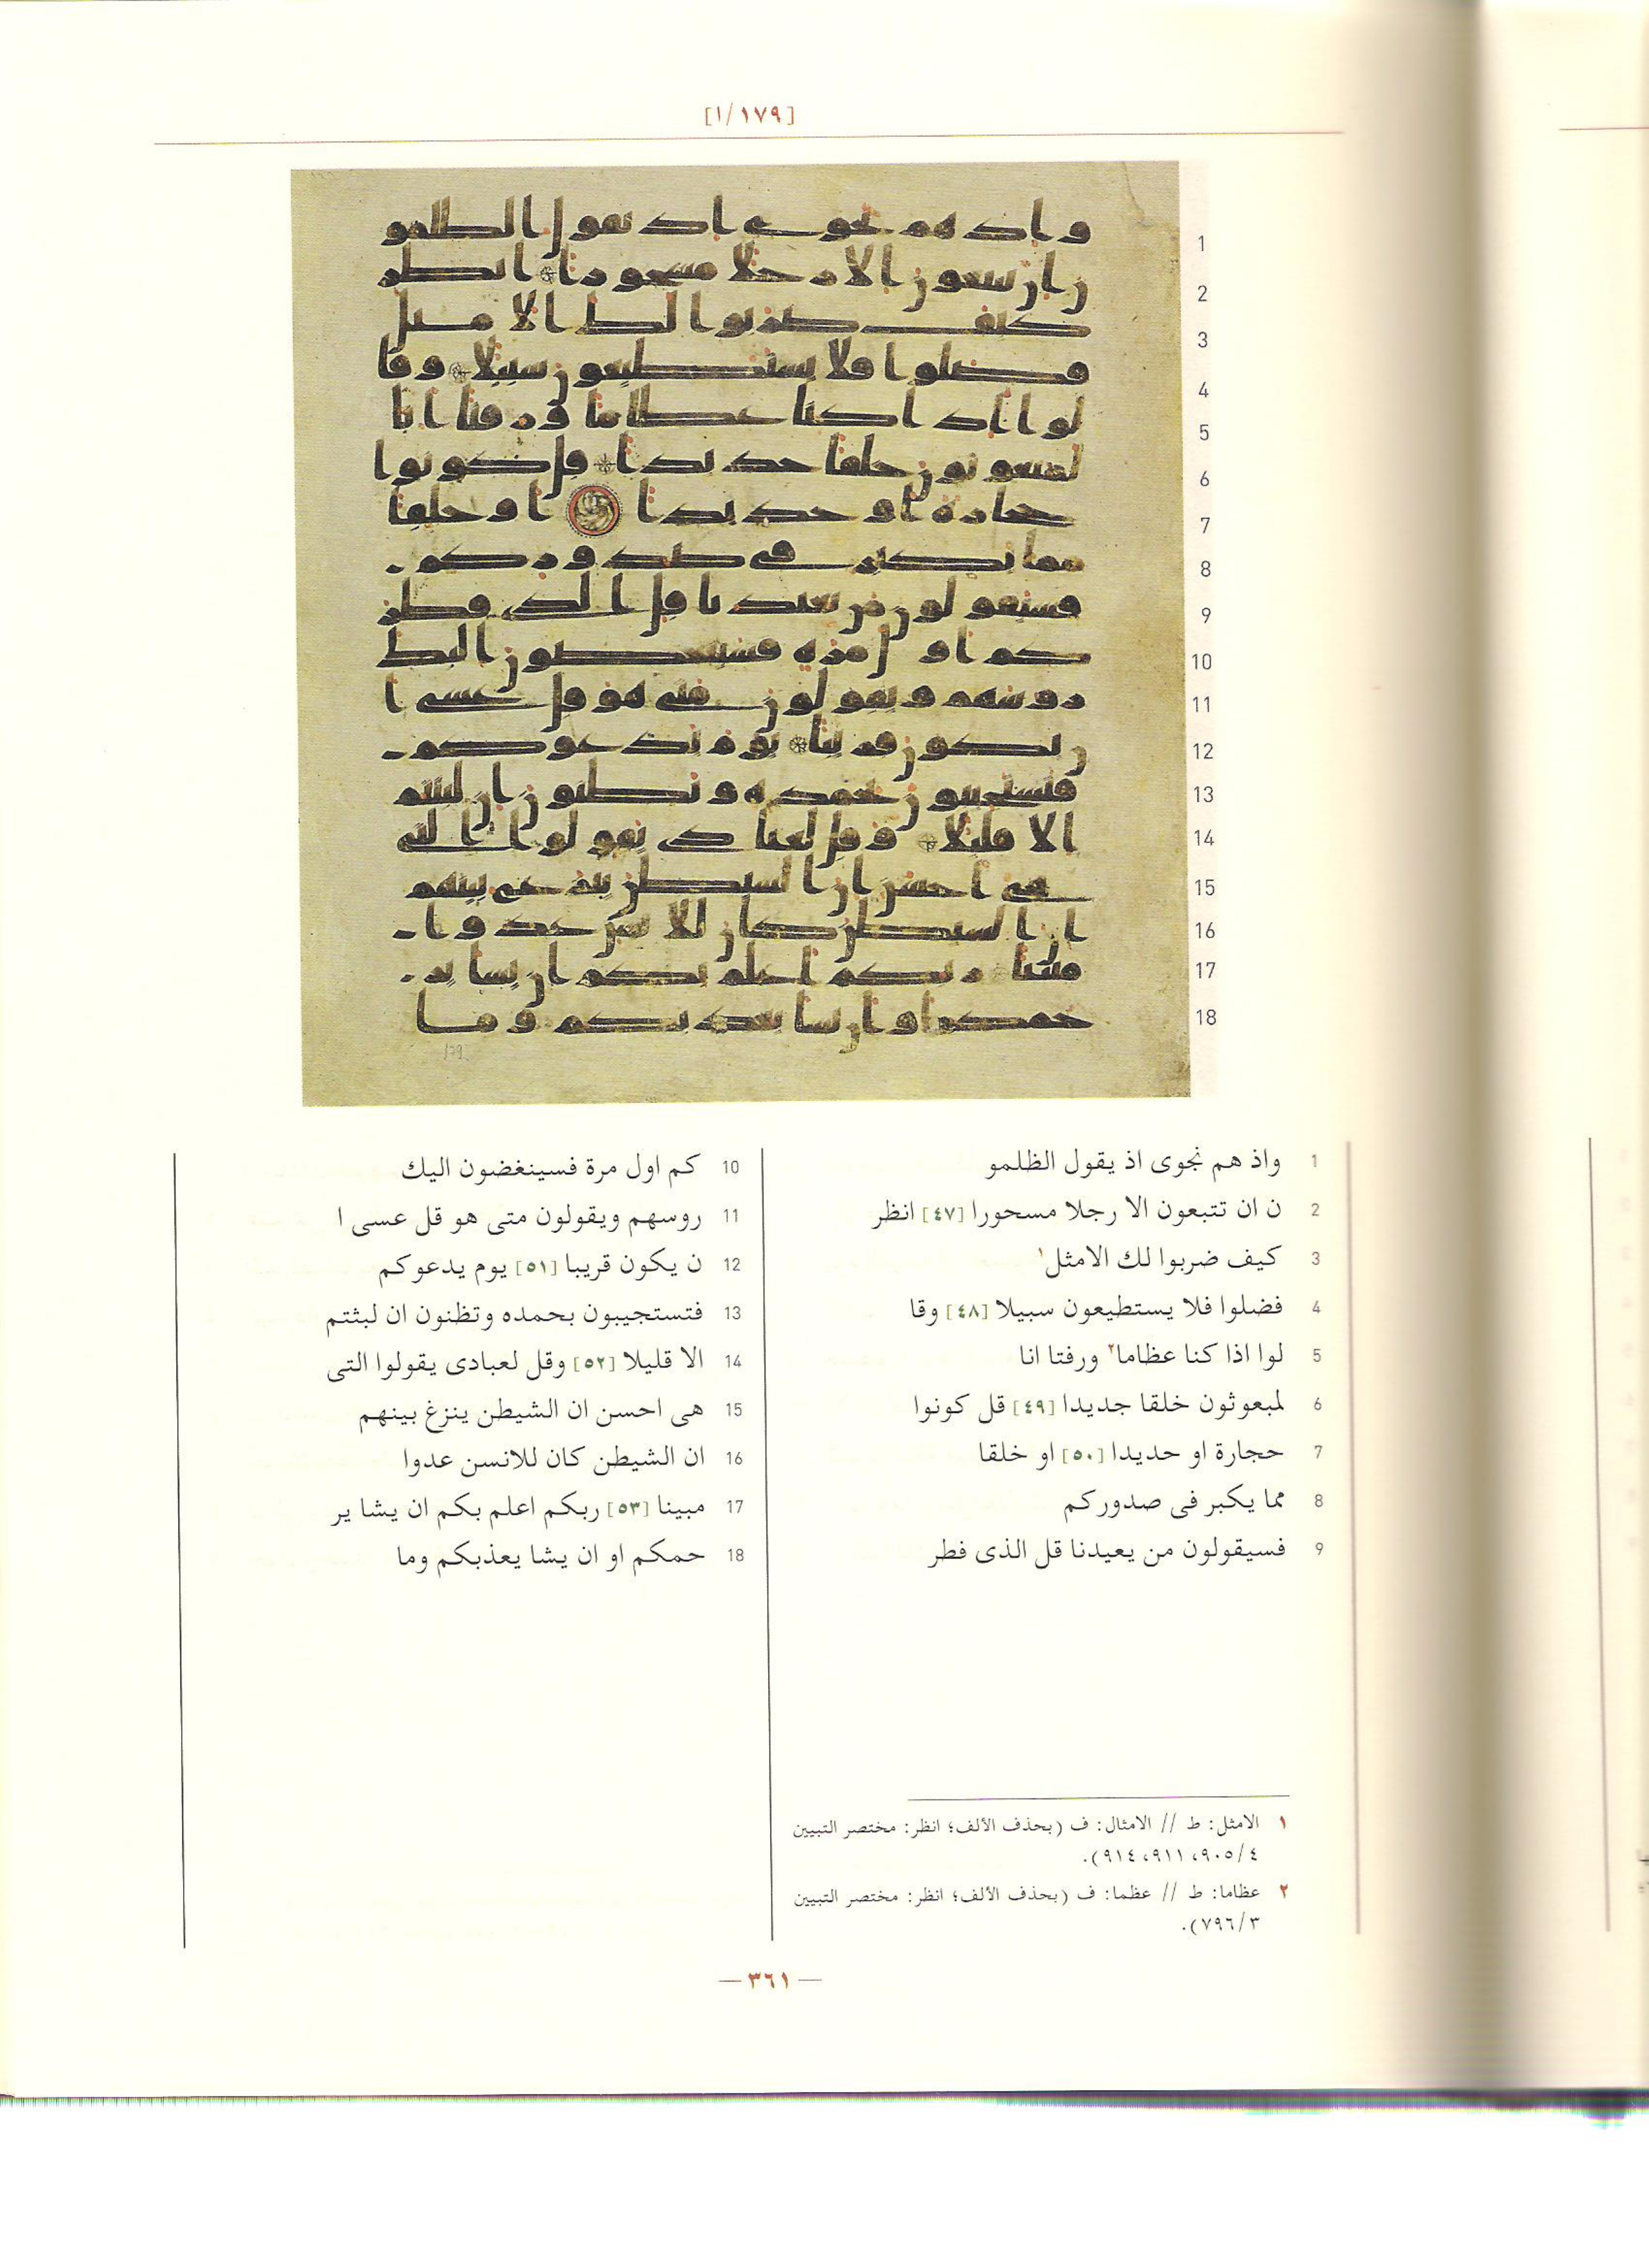 [١/١٧٩]
1 واذ هم نجوى اذ يقول الظلمو
2 ن ان تتبعون الا رجلا مسحورا [٤٧] انظر
3 كيف ضربوا لك الامثل١
4 فضلوا فلا يستطيعون سبيلا [٤٨] وقا
5 لوا اذا كنا عظاما٢ ورفتا انا
6 لمبعوثون خلقا جديدا [٤٩] قل كونوا
7 حجارة او حديدا [٥٠] او خلقا
8 مما يكبر فى صدوركم
9 فسيقولون من يعيدنا قل الذى فطر
10 كم اول مرة فسينغضون اليك
11 روسهم ويقولون متى هو قل عسى ا
12 ن يكون قريبا [٥١] يوم يدعوكم
13 فتستجيبون بحمده وتظنون ان لبثتم
14 الا قليلا [٥٢] وقل لعبادى يقولوا التى
15 هى احسن ان الشيطن ينزغ بينهم
16 ان الشيطن كان للانسن عدوا
17 مبينا [٥٣] ربكم اعلم بكم ان يشا ير
18 حمكم او ان يشا يعذبكم وما
١ الامثل: ط // الامثال: ف (بحذف الألف؛ انظر: مختصر التبيين
٤/٩٠٥، ٩١١، ٩١٤).
٢ عظاما: ط // عظما: ف (بحذف الألف؛ انظر: مختصر التبيين
٣/٧٩٦).
— ٣٦١ —